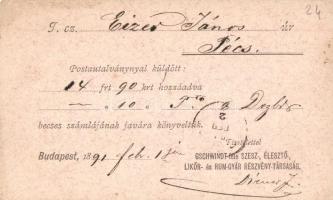 24
T. cz. Eizer János úr
Pécs.
Postautalványnyal küldött:
14 frt 90 krt hozzáadva
— „ 10 „
becses számlájának javára könyveltük.
Tisztelettel
Budapest, 1891 feb. 1
GSCHWINDT-féle SZESZ-, ÉLESZTŐ,
LIKŐR- és RUM-GYÁR RÉSZVÉNY-TÁRSASÁG.